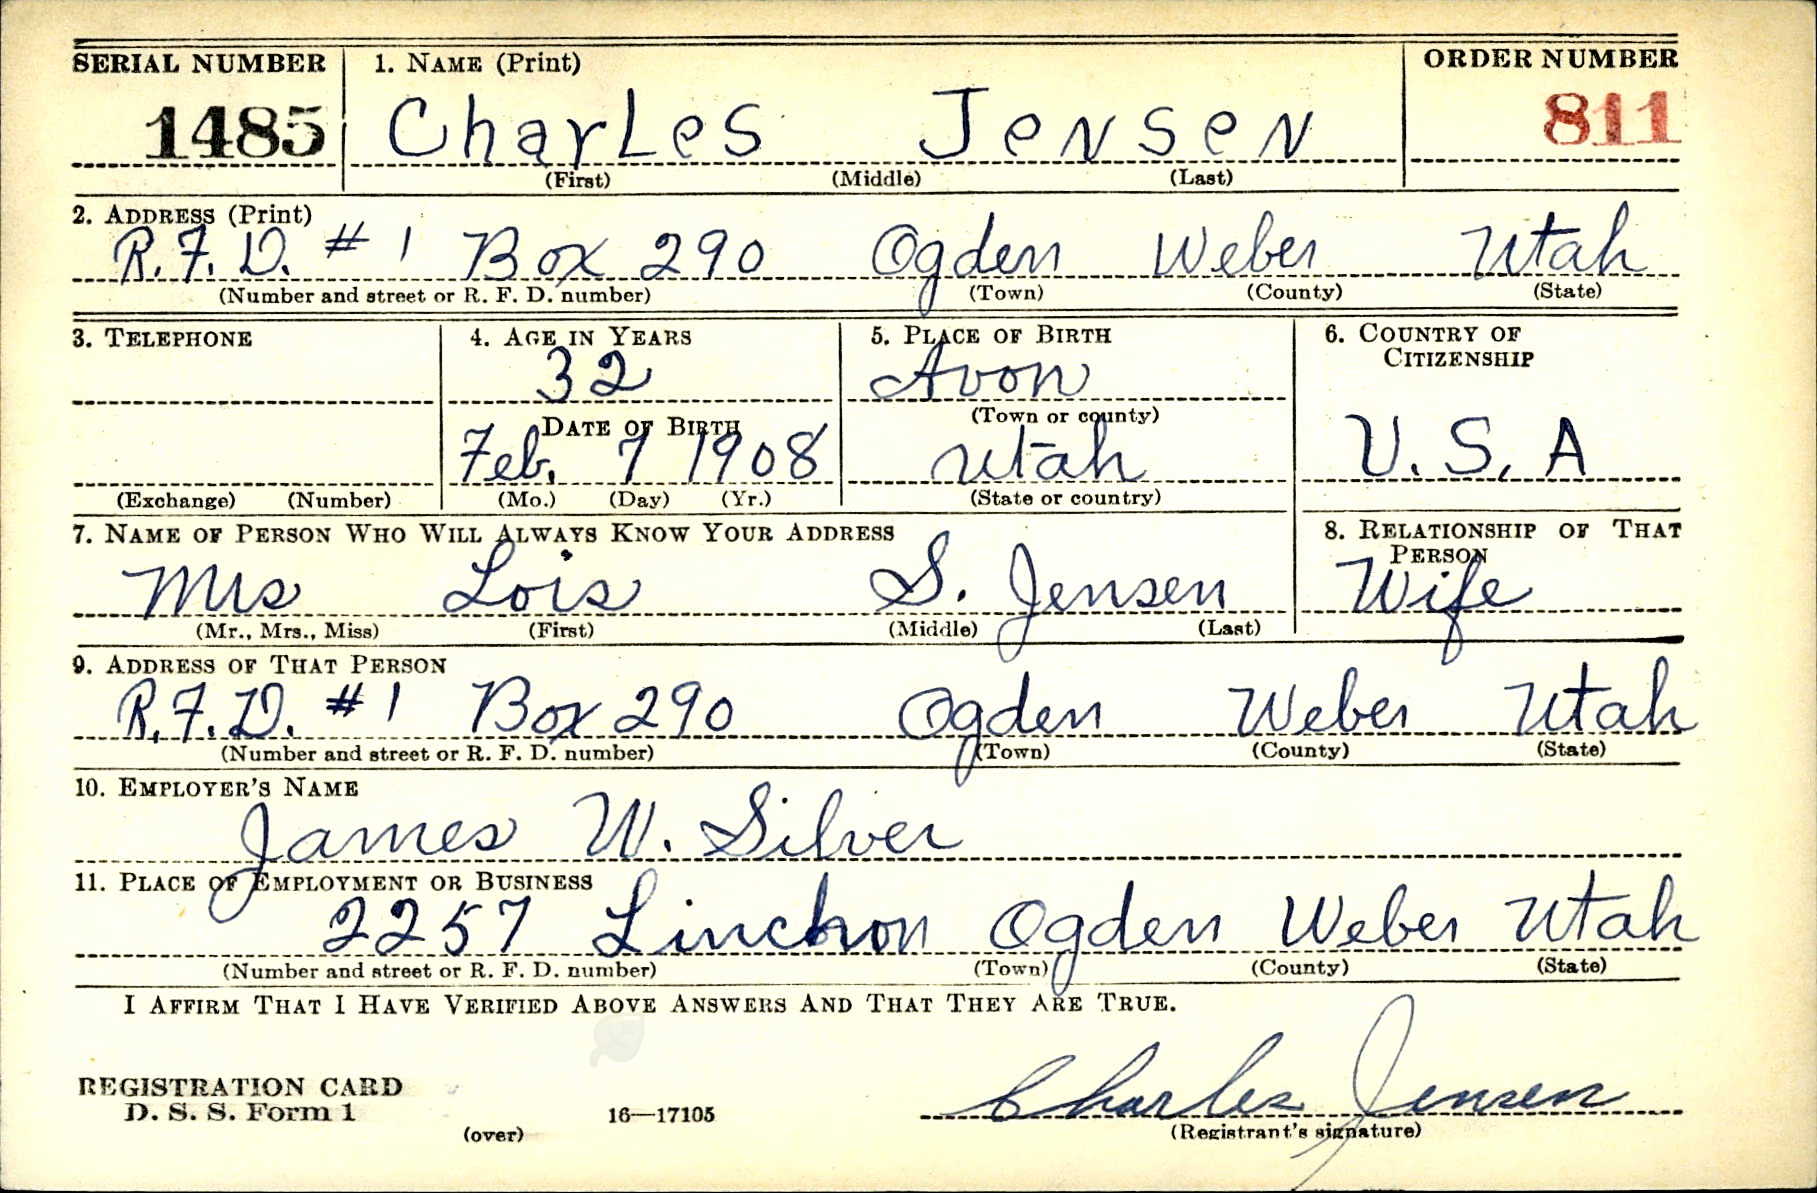 SERIAL NUMBER 1. NAME (Print) ORDER NUMBER
1485 Charles Jensen 811
(First) (Middle) (Last)
2. ADDRESS (Print)
R.F.D. # 1 Box 290 Ogden Weber Utah
(Number and street or R. F. D. number) (Town) (County) (State)
3. TELEPHONE 4. AGE IN YEARS 5. PLACE OF BIRTH 6. COUNTRY OF CITIZENSHIP
32 Avon
DATE OF BIRTH (Town or county)
Feb. 7 1908 Utah U.S.A
(Exchange) (Number) (Mo.) (Day) (Yr.) (State or country)
7. NAME OF PERSON WHO WILL ALWAYS KNOW YOUR ADDRESS 8. RELATIONSHIP OF THAT PERSON
Mrs Lois S. Jensen Wife
(Mr., Mrs., Miss) (First) (Middle) (Last)
9. ADDRESS OF THAT PERSON
R.F.D. #1 Box 290 Ogden Weber Utah
(Number and street or R. F. D. number) (Town) (County) (State)
10. EMPLOYER'S NAME
James W. Silver
11. PLACE OF EMPLOYMENT OR BUSINESS
2257 Ogden Weber Utah
(Number and street or R. F. D. number) (Town) (County) (State)
I AFFIRM THAT I HAVE VERIFIED ABOVE ANSWERS AND THAT THEY ARE TRUE.
Charles Jensen
REGISTRATION CARD
D. S. S. Form 1 16—17105
(over) (Registrant's signature)